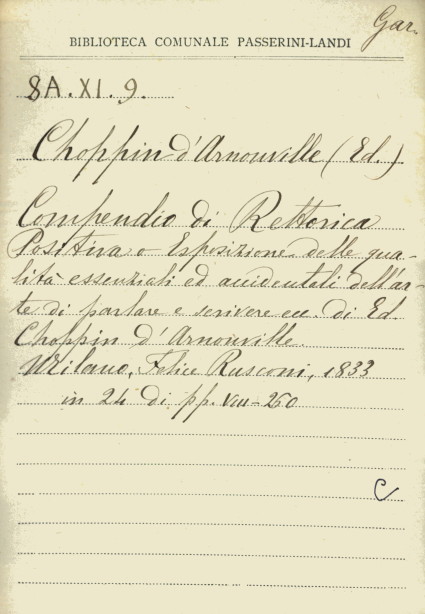 Gar.
BIBLIOTECA COMUNALE PASSERINI-LANDI
8A.XI.9.
Choppin d'Arnouville (Ed.)
Compendio di Rettorica
Positiva o Esposizione delle qua-
lità essenziali ed accidentali dell'ar-
te di parlare e scrivere ecc. di Ed.
Choppin d'Arnouville.
Milano, Felice Rusconi, 1833
in 24 di pp. VIII-250
C